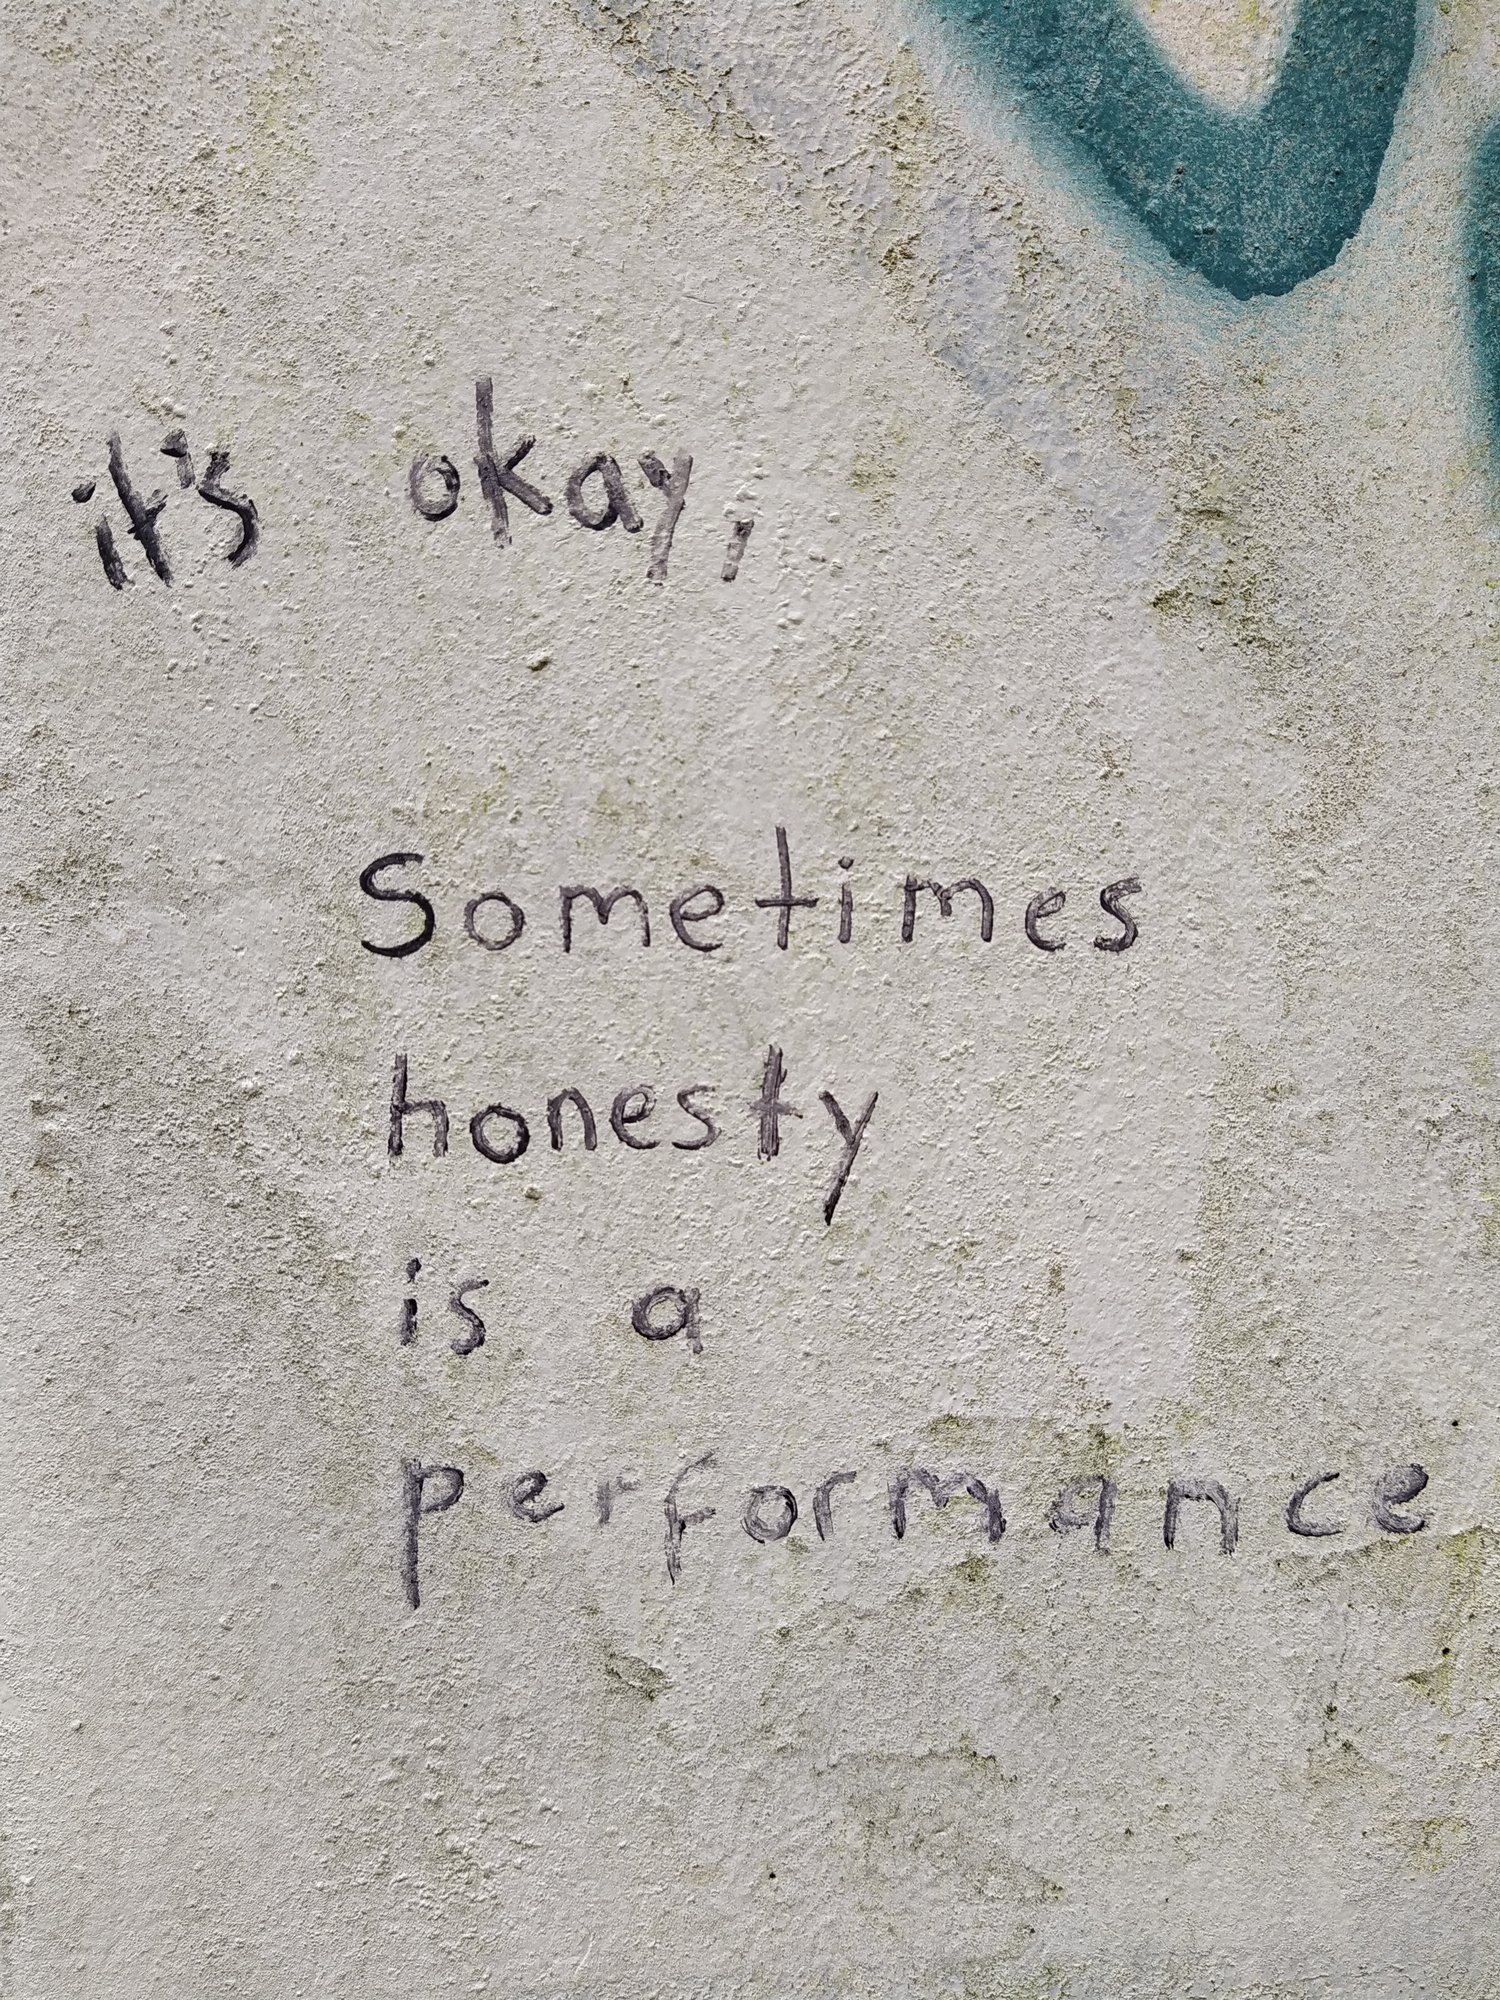 it's okay,
Sometimes
honesty
is a
performance